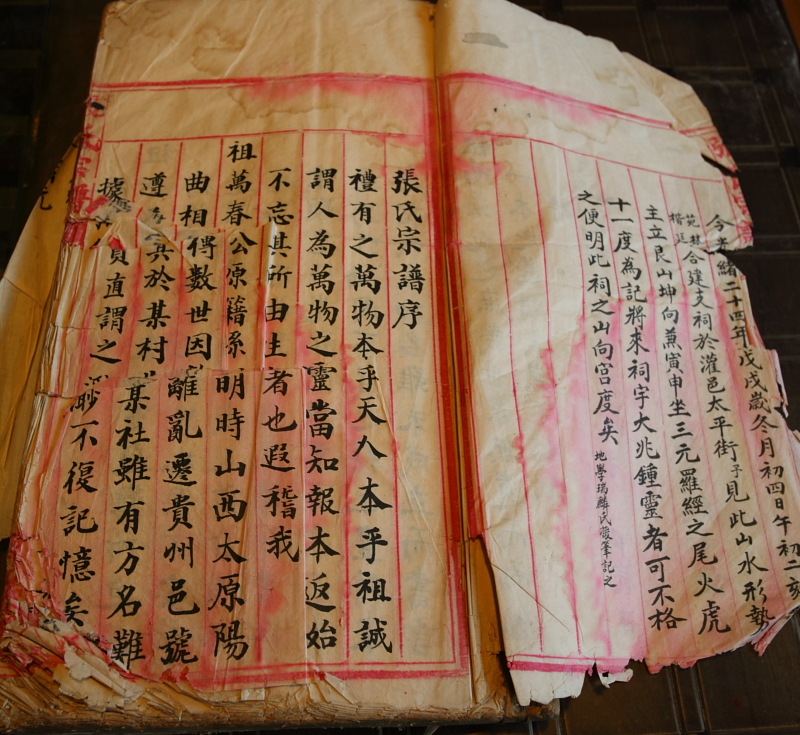 今光緒二十四年戊戌歲冬月初四日午初二亥
合建支祠於灌邑太平街予見此山水形勢
主立艮山坤向兼寅申坐三元羅經之尾火虎
十一度為記將來祠宇大兆鍾靈者可不格
之便明此祠之山向宮度矣 地學瑞麟氏 筆記之
張氏宗譜序
禮有之萬物本乎天人本乎祖誠
謂人為萬物之靈當知報本返始
不忘其所由生者也遐稽我
祖萬春公原籍系明時山西太原陽
曲相傳數世因離亂遷貴州邑號
遵 其於某村某社雖有方名難
據 直謂之渺不復記憶矣